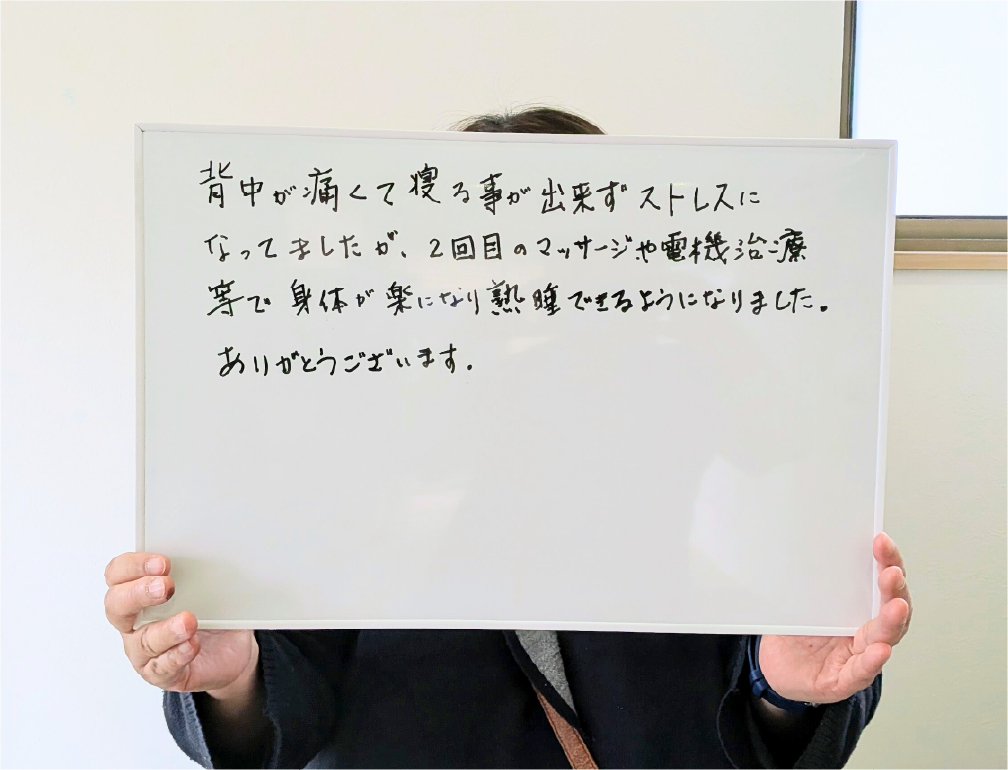 背中が痛くて寝る事が出来ずストレスに
なってましたが、2回目のマッサージや電機治療
等で身体が楽になり熟睡できるようになりました。
ありがとうございます。